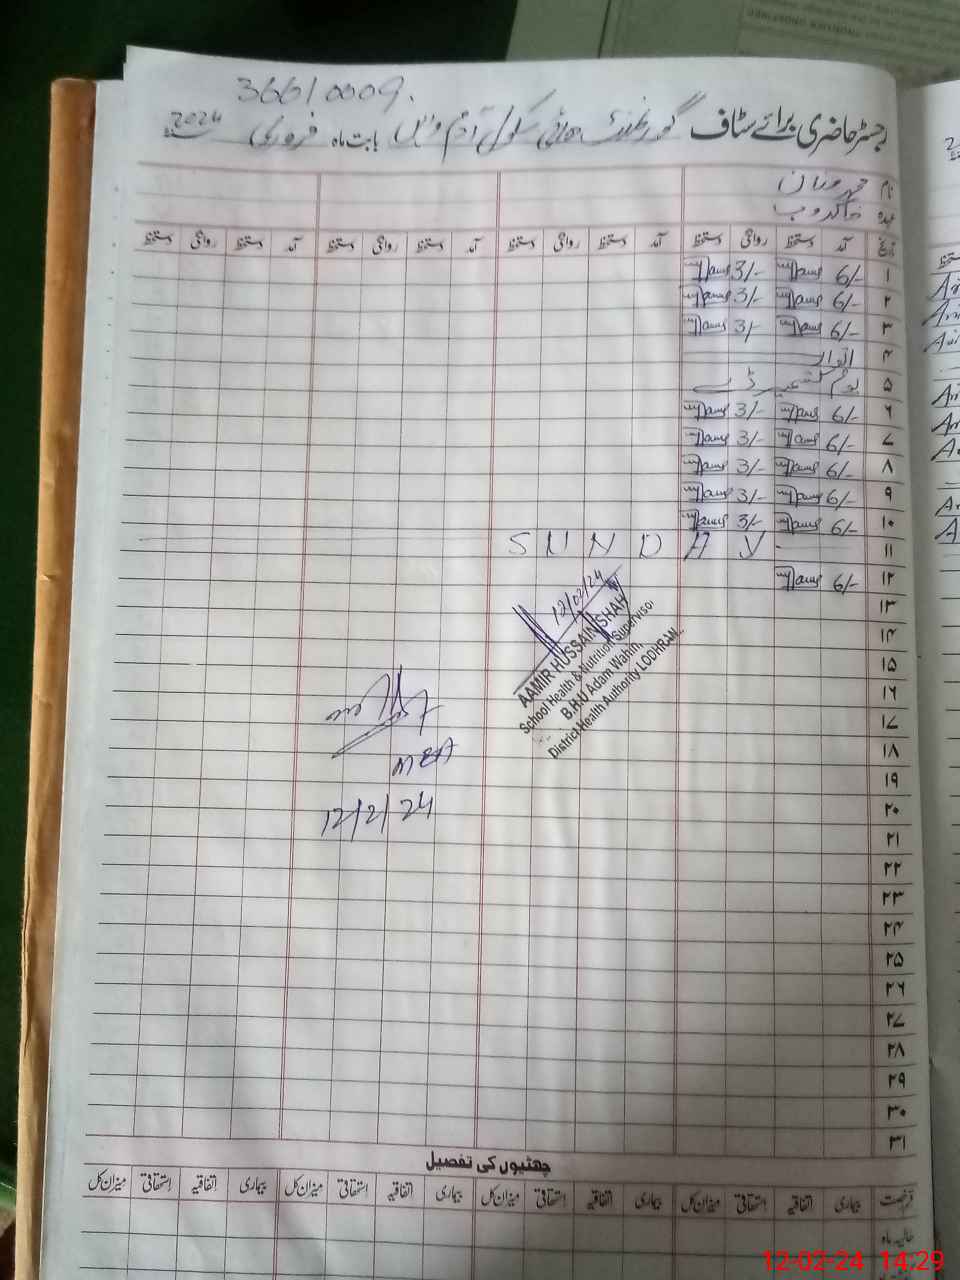 36610009.
رجسٹر حاضری برائے سٹاف گورنمنٹ ہائی سکول آدم واہن بابت ماہ فروری 2024
نام
عہدہ خاکروب
تاریخ آمد دستخط روانگی دستخط آمد دستخط روانگی دستخط آمد دستخط روانگی دستخط آمد دستخط روانگی دستخط
۱ 6/- 3/-
۲ 6/- 3/-
۳ 6/- 3/-
۴ اتوار
۵ یوم کشمیر ڈے
۶ 6/- 3/-
۷ 6/- 3/-
۸ 6/- 3/-
۹ 6/- 3/-
۱۰ 6/- 3/-
۱۱ SUNDAY
۱۲ 6/-
۱۳
۱۴
۱۵
۱۶
۱۷
۱۸
۱۹
۲۰
۲۱
۲۲
۲۳
۲۴
۲۵
۲۶
۲۷
۲۸
۲۹
۳۰
۳۱
12/02/24
AAMIR HUSSAIN SHAH
School Health & Nutrition Supervisor
B.H.U Adam Wahin,
District Health Authority LODHRAN.
MEA
12/2/24
چھٹیوں کی تفصیل
قسم رخصت بیماری اتفاقیہ استحقاقی میزان کل بیماری اتفاقیہ استحقاقی میزان کل بیماری اتفاقیہ استحقاقی میزان کل بیماری اتفاقیہ استحقاقی میزان کل
حالیہ ماہ
12-02-24 14:29